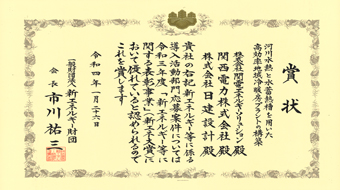 賞状
河川水熱と水蓄熱槽を用いた
高効率地域冷暖房プラント構築
株式会社関電エネルギーソリューション殿
関西電力株式会社殿
株式会社日建設計殿
貴社の右記新エネルギー等に係る
導入活動部門応募案件については
令和三年度「新エネルギー等に
関する表彰事業」「新エネ大賞」に
おいて優れていると認められるので
これを賞します
令和四年一月二十六日
一般財団法人新エネルギー財団
会長 市川祐三